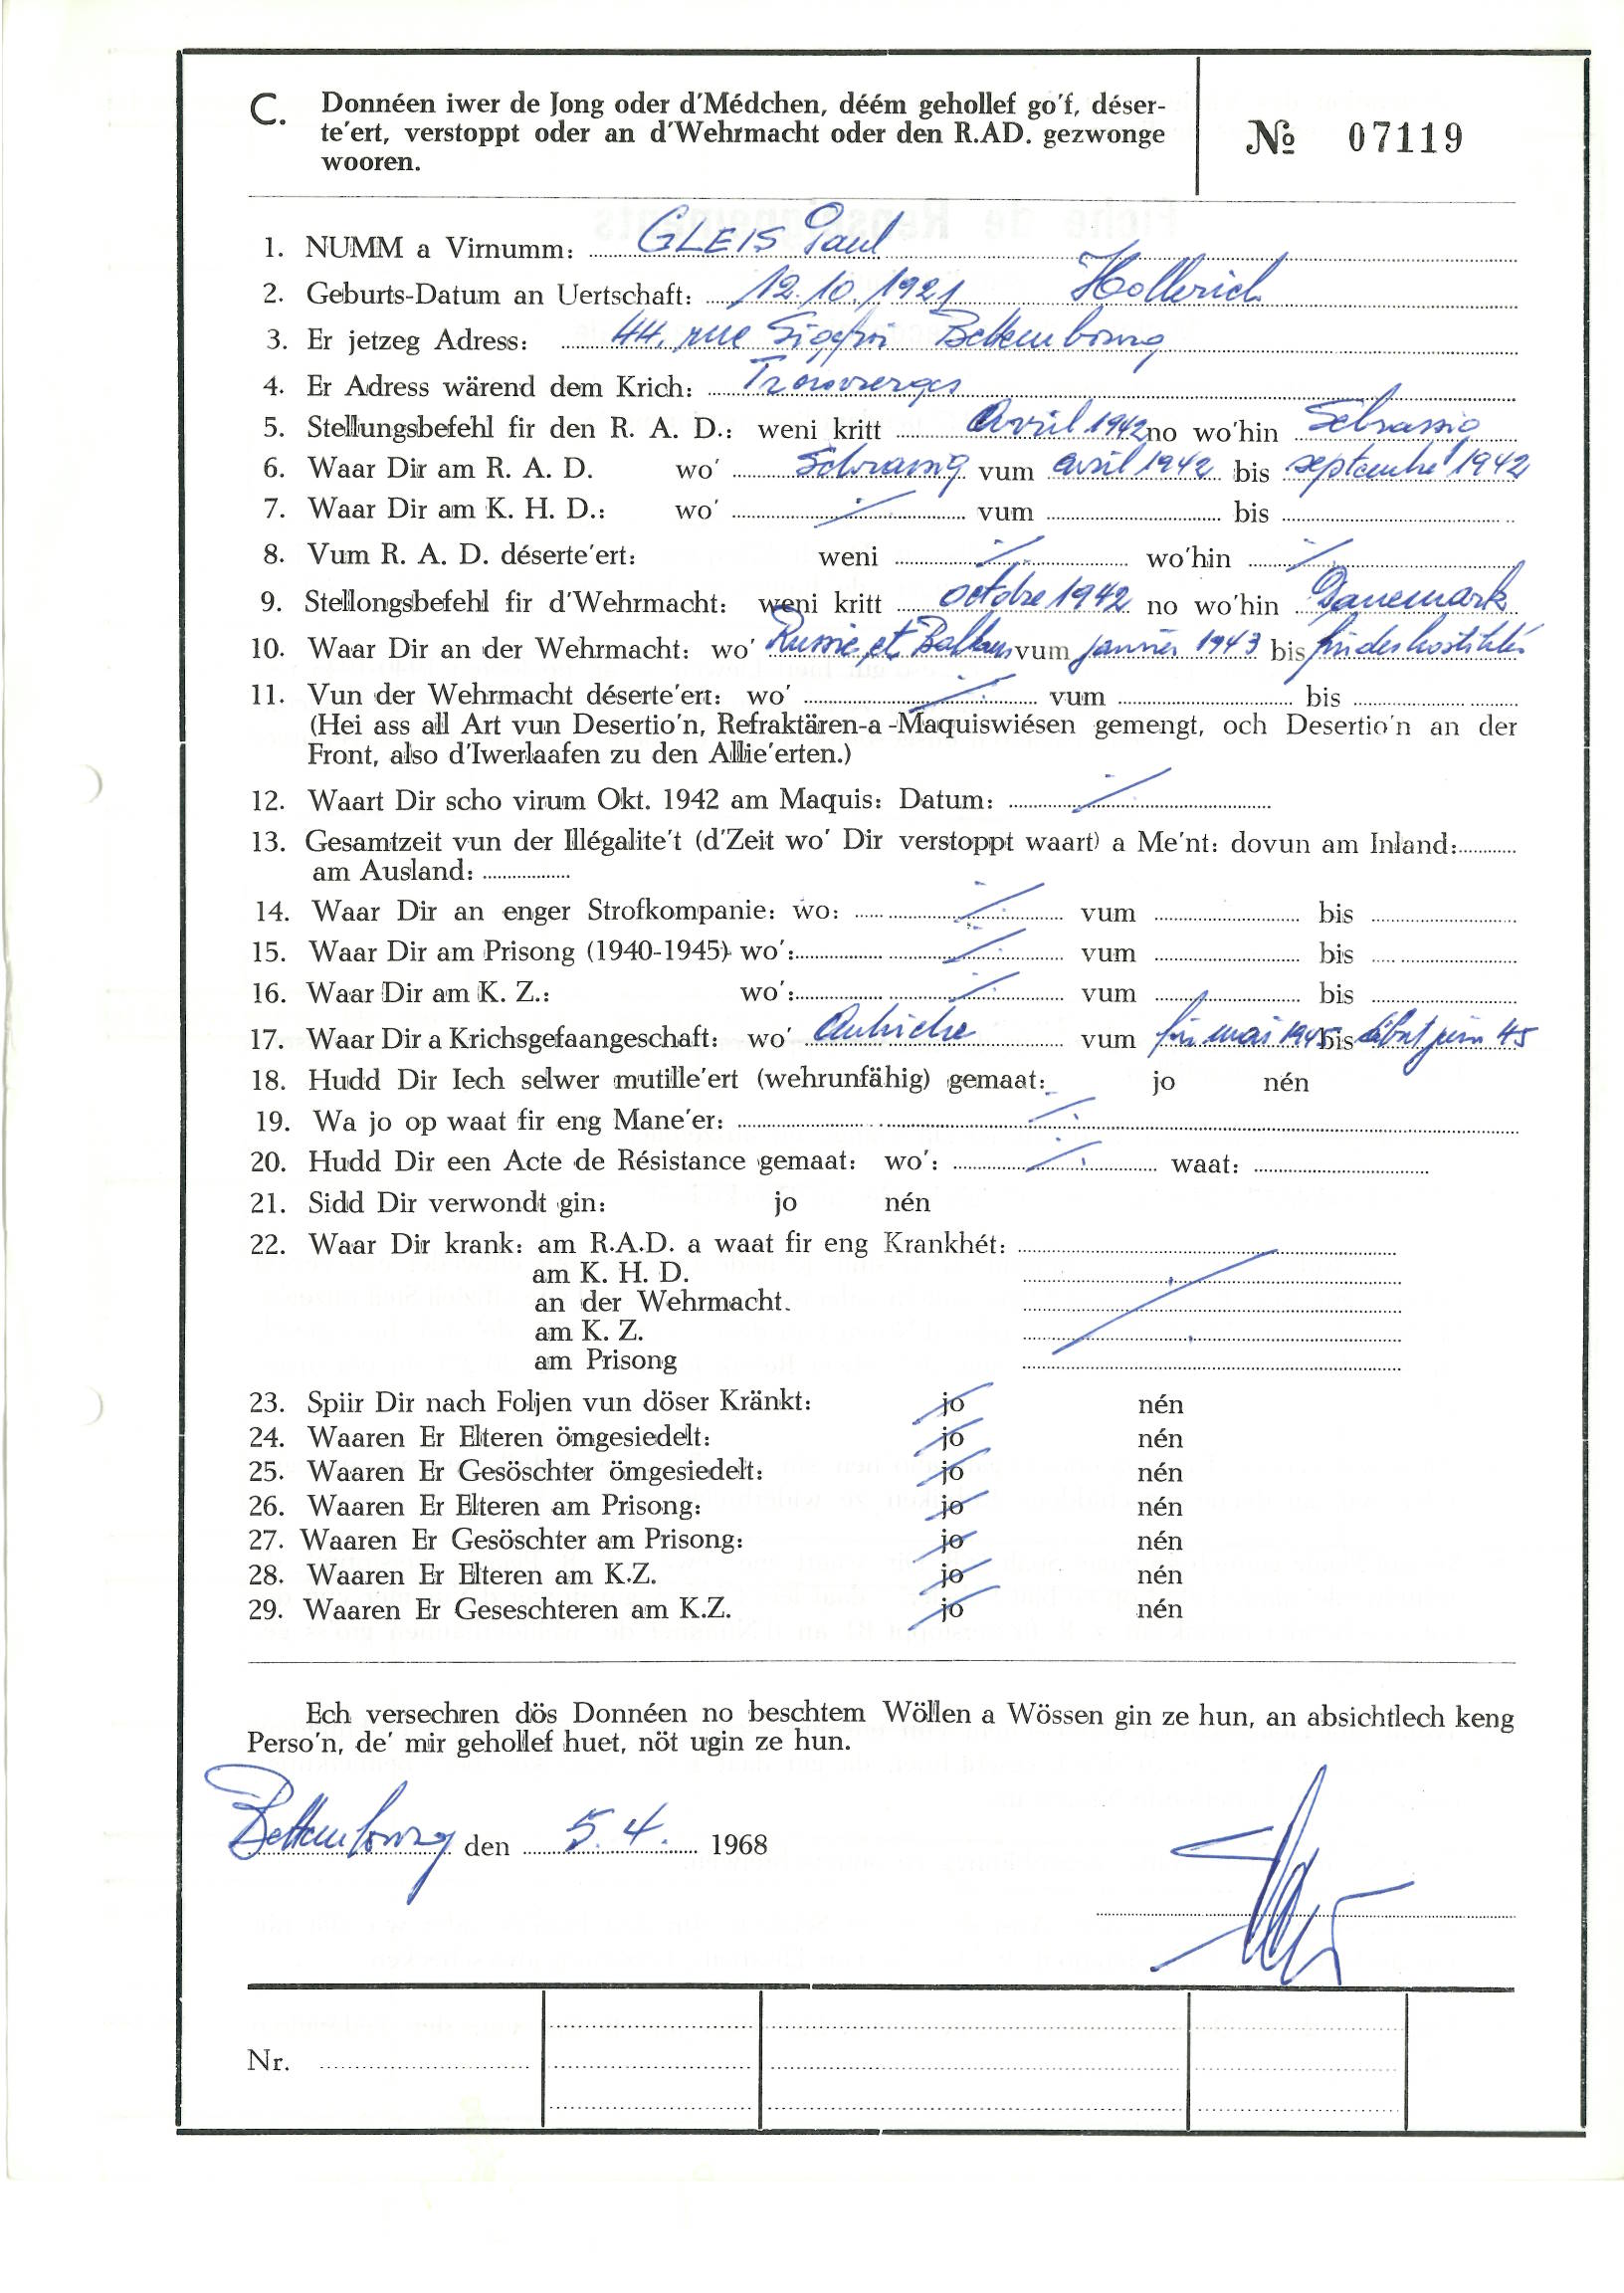 C. Donnéen iwer de Jong oder d'Médchen, déém gehollef go'f, déser-
te'ert, verstoppt oder an d'Wehrmacht oder den R.AD. gezwonge
wooren.
№ 07119
1. NUMM a Virnumm: GLEIS Paul
2. Geburts-Datum an Uertschaft: 12.10.1921 Hollerich
3. Er jetzeg Adress: 44, rue Sigefroi Bettembourg
4. Er Adress wärend dem Krich: Troisvierges
5. Stellungsbefehl fir den R. A. D.: weni kritt Avril 1942 no wo'hin Schrassig
6. Waar Dir am R. A. D. wo' Schrassig vum avril 1942 bis septembre 1942
7. Waar Dir am K. H. D.: wo' ./. vum bis
8. Vum R. A. D. déserte'ert: weni ./. wo'hin ./.
9. Stellongsbefehl fir d'Wehrmacht: weni kritt octobre 1942 no wo'hin Danemark
10. Waar Dir an der Wehrmacht: wo' Russie et Balkans vum janvier 1943 bis fin des hostilités
11. Vun der Wehrmacht déserte'ert: wo' ./. vum bis
(Hei ass all Art vun Desertio'n, Refraktären-a-Maquiswiésen gemengt, och Desertio'n an der
Front, also d'Iwerlaafen zu den Allie'erten.)
12. Waart Dir scho virum Okt. 1942 am Maquis: Datum: ./.
13. Gesamtzeit vun der Illégalite't (d'Zeit wo' Dir verstoppt waart) a Me'nt: dovun am Inland:
am Ausland:
14. Waar Dir an enger Strofkompanie: wo: ./. vum bis
15. Waar Dir am Prisong (1940-1945) wo': ./. vum bis
16. Waar Dir am K. Z.: wo': ./. vum bis
17. Waar Dir a Krichsgefaangeschaft: wo' Autriche vum fin mai 1945 bis début juin 45
18. Hudd Dir Iech selwer mutille'ert (wehrunfähig) gemaat: jo nén
19. Wa jo op waat fir eng Mane'er: ./.
20. Hudd Dir een Acte de Résistance gemaat: wo': ./. waat:
21. Sidd Dir verwondt gin: jo nén
22. Waar Dir krank: am R.A.D. a waat fir eng Krankhét:
am K. H. D.
an der Wehrmacht. ./.
am K. Z.
am Prisong
23. Spiir Dir nach Foljen vun döser Kränkt: jo nén
24. Waaren Er Elteren ömgesiedelt: jo nén
25. Waaren Er Gesöschter ömgesiedelt: jo nén
26. Waaren Er Elteren am Prisong: jo nén
27. Waaren Er Gesöschter am Prisong: jo nén
28. Waaren Er Elteren am K.Z. jo nén
29. Waaren Er Geseschteren am K.Z. jo nén
Ech versechren dös Donnéen no beschtem Wöllen a Wössen gin ze hun, an absichtlech keng
Perso'n, de' mir gehollef huet, nöt ugin ze hun.
Bettembourg den 5.4. 1968
Nr.